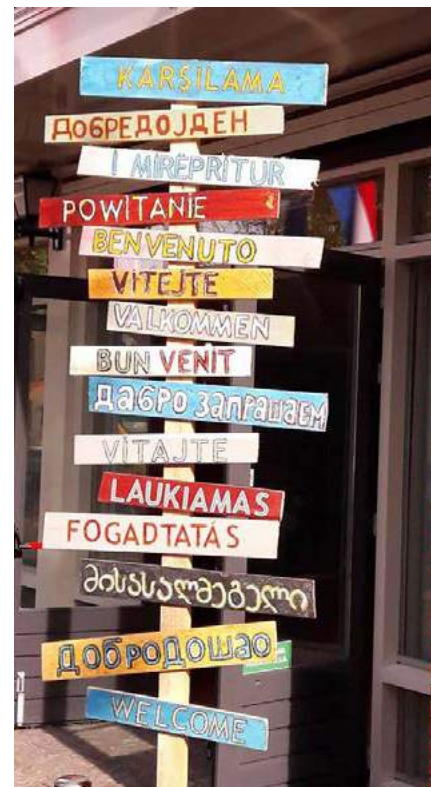 KARŞILAMA
ДОБРЕДОЈДЕН
I MIREPRITUR
POWITANIE
BENVENUTO
VITEJTE
VALKOMMEN
BUN VENIT
ДАБРО ЗАПРАШАЕМ
VÍTAJTE
LAUKIAMAS
FOGADTATÁS
მისასალმებელი
ДОБРОДОШАО
WELCOME